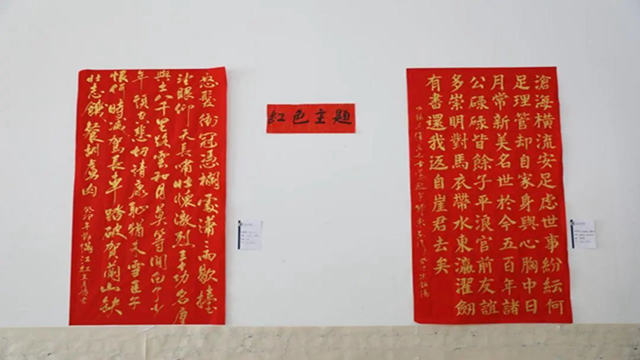 怒髮衝冠憑欄處瀟雨歇擡
望眼仰天長嘯壯懷激烈功名塵
與土八千里路雲和月莫等閒白了少
年頭悲切靖康恥猶未雪臣子
恨何時滅駕長車踏破賀蘭山缺
壯志饑餐胡虜肉
紅色主題
滄海橫流安足慮世事紛紜何
足理管却自家身與心胸中日
月常新美名世於今五百年諸
公碌碌皆餘子平浪官前友誼
多崇明對馬衣帶水東瀛濯劍
有書還我返自崖君去矣